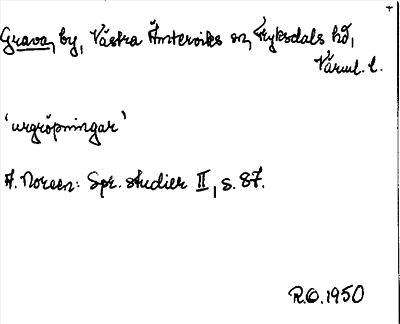 Grava, by, Västra Ämterviks sn, Fryksdals hd,
Värml. l.
'urgröpningar'
A. Noreen: Spr. studier II, s. 87.
R.O. 1950